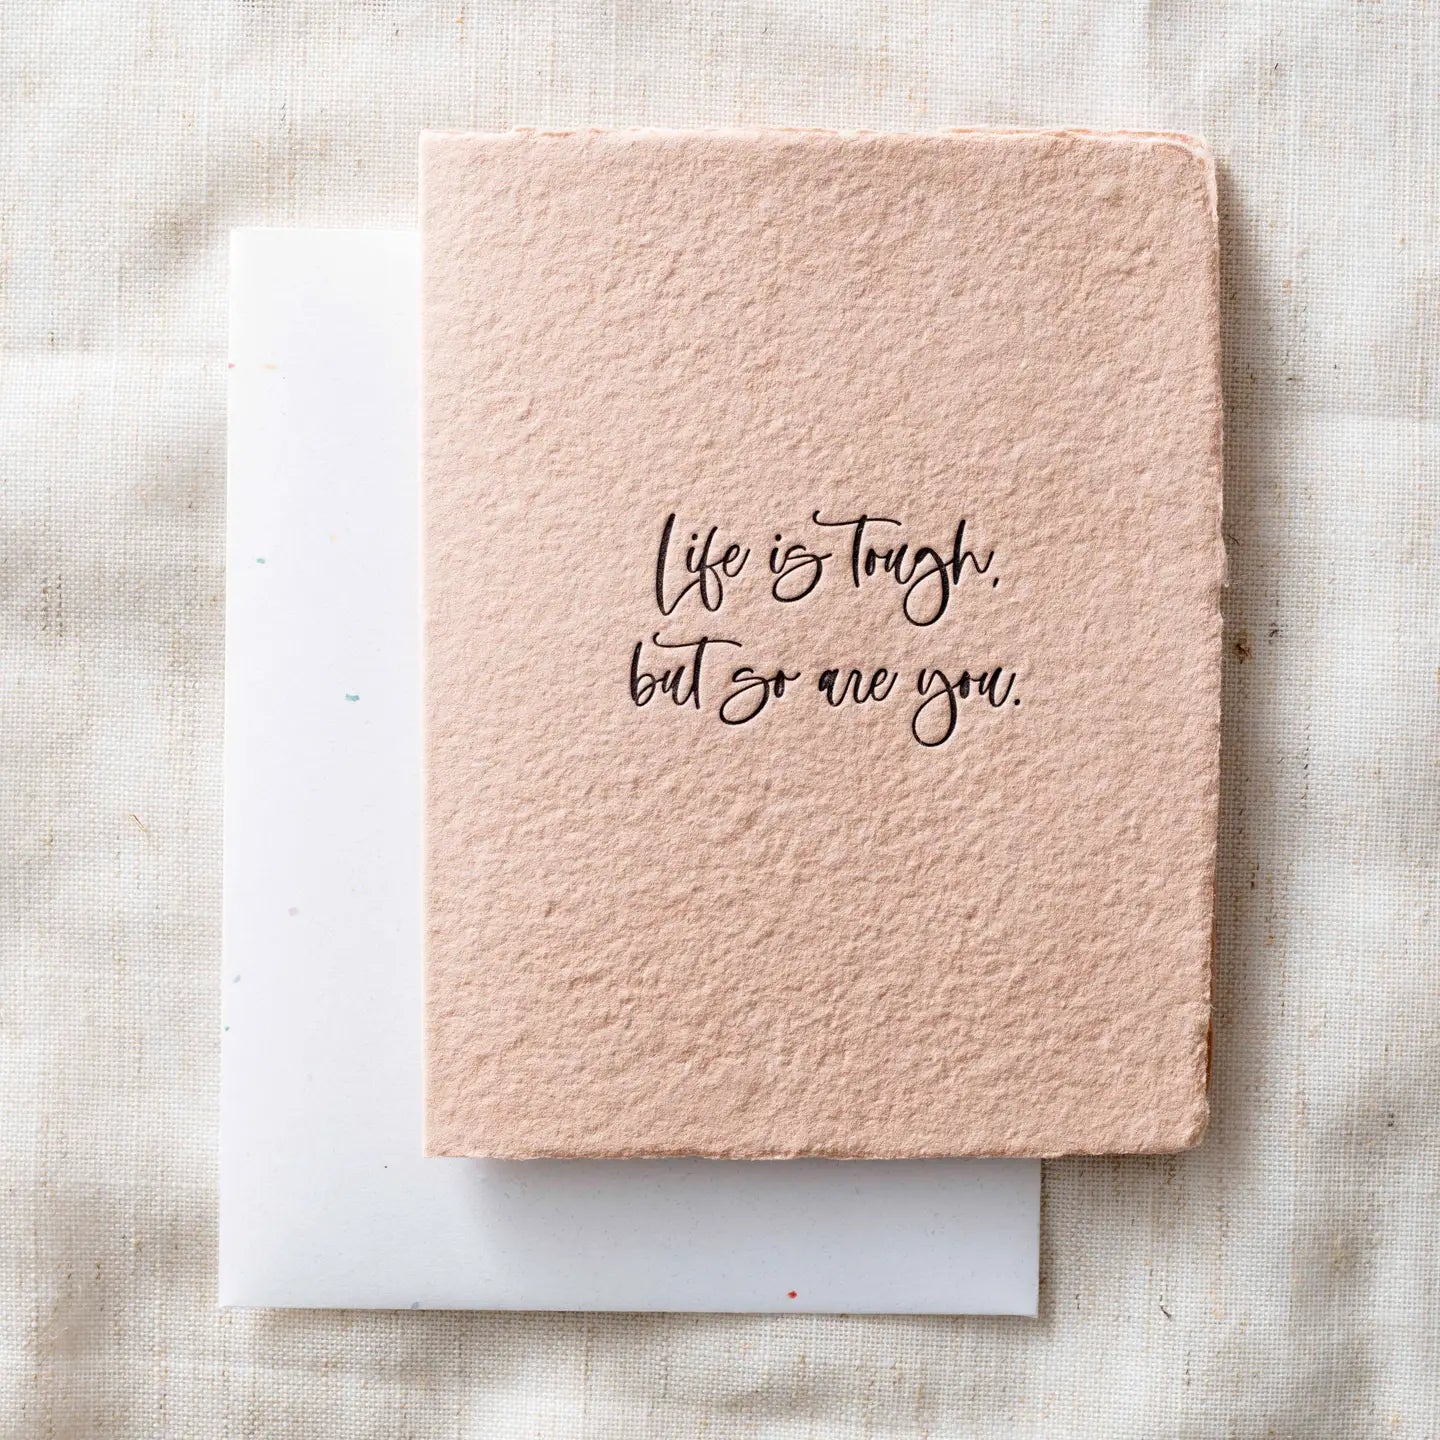 Life is Tough,
but so are you.